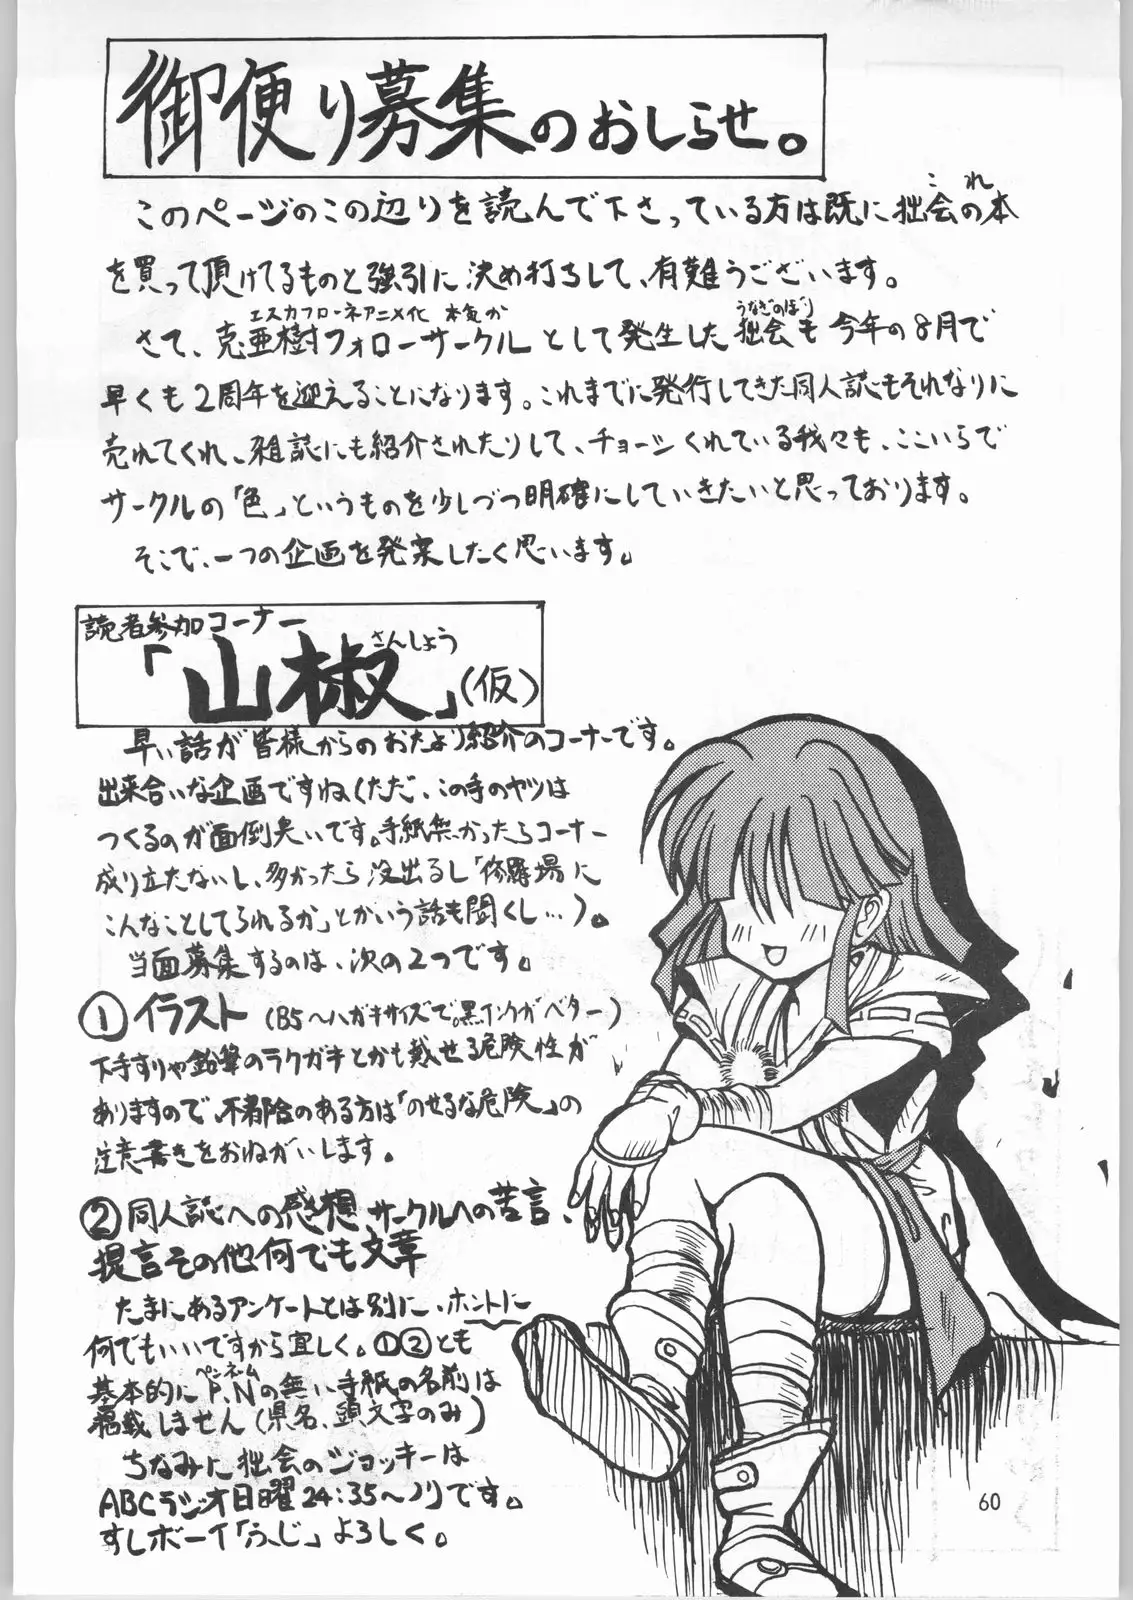 御便り募集のおしらせ。
このページのこの辺りを読んで下さっている方は既に拙会の本
これ
を買って頂けてるものと強引に決め打ちして、有難うございます。
エスカフローネアニメ化 本気か
うなぎのぼり
さて、克亜樹フォローサークルとして発生した拙会も今年の8月で
早くも2周年を迎えることになります。これまでに発行してきた同人誌もそれなりに
売れてくれ、雑誌にも紹介されたりして、チョーシくれている我々も、ここいらで
サークルの「色」というものを少しづつ明確にしていきたいと思っております。
そこで、一つの企画を発案したく思います。
読者参加コーナー
さんしょう
「山椒」(仮)
早い話が皆様からのおたより紹介のコーナーです。
出来合いな企画ですね(ただ、この手のヤツは
つくるのが面倒臭いです。手紙無かったらコーナー
成り立たないし、多かったら没出るし「修羅場に
こんなことしてられるか」とかいう話も聞くし…)。
当面募集するのは、次の2つです。
① イラスト (B5〜ハガキサイズで。黒インクがベター)
下手すりゃ鉛筆のラクガキとかも載せる危険性が
ありますので、不都合のある方は「のせるな危険」の
注意書きをおねがいします。
② 同人誌への感想 サークルへの苦言、
提言その他何でも文章
たまにあるアンケートとは別に、ホントに
何でもいいですから宜しく。①②とも
ペンネーム
基本的にP.Nの無い手紙の名前は
掲載しません(県名、頭文字のみ)
ちなみに拙会のジョッキーは
ABCラジオ日曜24:35〜ノリです。
すしボーイ「ふじ」よろしく。
60